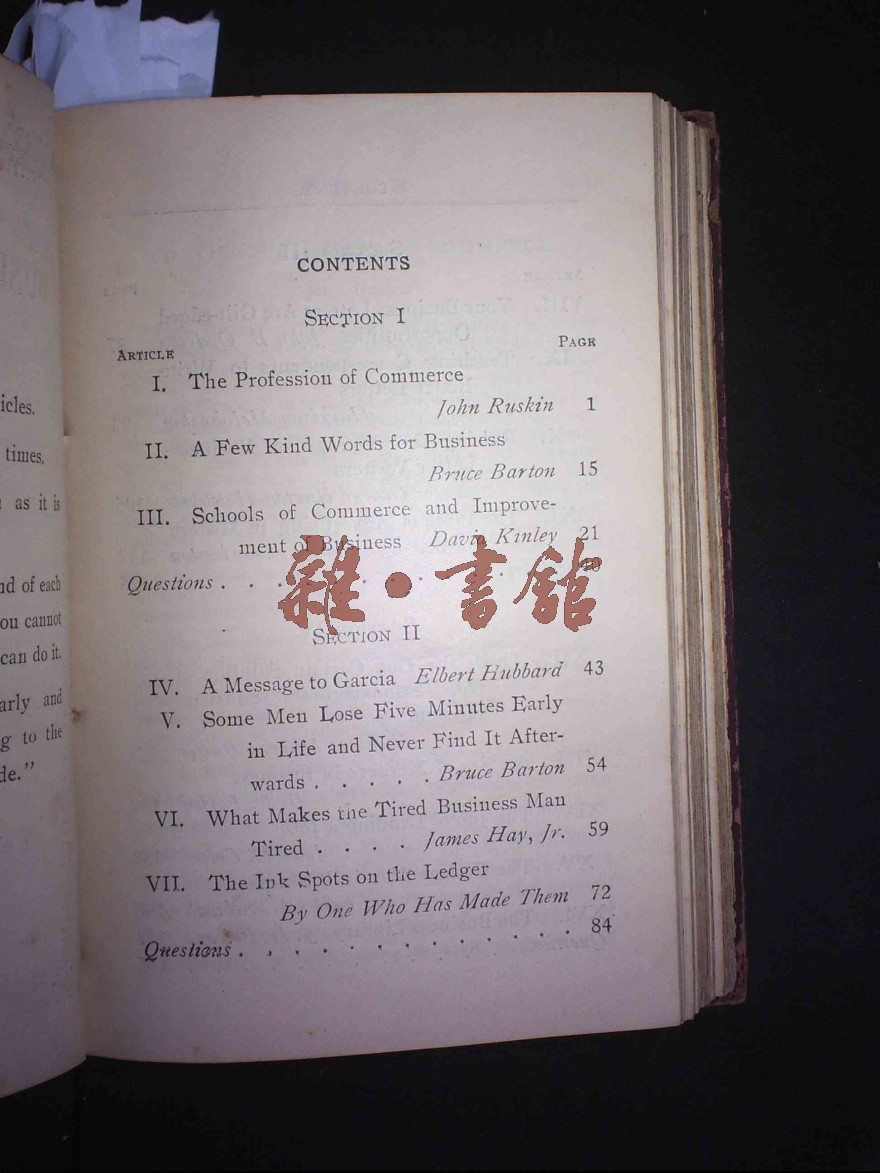 icles.
times.
as it is
nd of each
ou cannot
can do it.
arly and
g to the
de."
CONTENTS
SECTION I
ARTICLE PAGE
I. The Profession of Commerce
John Ruskin 1
II. A Few Kind Words for Business
Bruce Barton 15
III. Schools of Commerce and Improve-
ment of Business David Kinley 21
Questions . . . . . . . . . .
雜·書館
SECTION II
IV. A Message to Garcia Elbert Hubbard 43
V. Some Men Lose Five Minutes Early
in Life and Never Find It After-
wards . . . . . Bruce Barton 54
VI. What Makes the Tired Business Man
Tired . . . . James Hay, Jr. 59
VII. The Ink Spots on the Ledger
By One Who Has Made Them 72
Questions . . . . . . . . . . . . 84